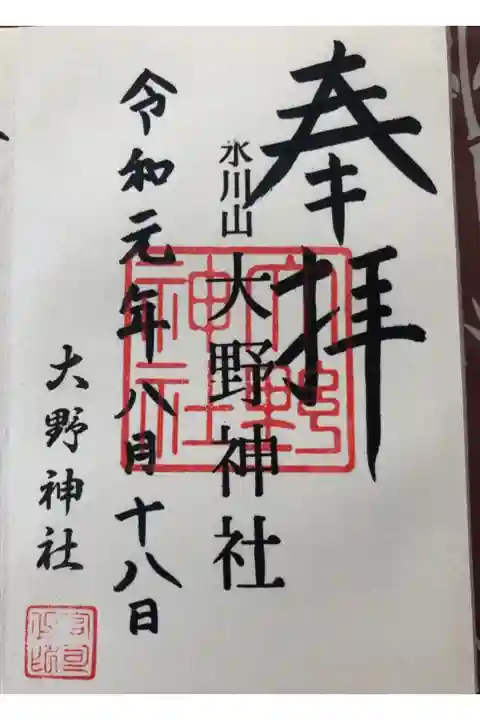 奉拝
氷川山
大野神社
大野神社
令和元年八月十八日
大野神社